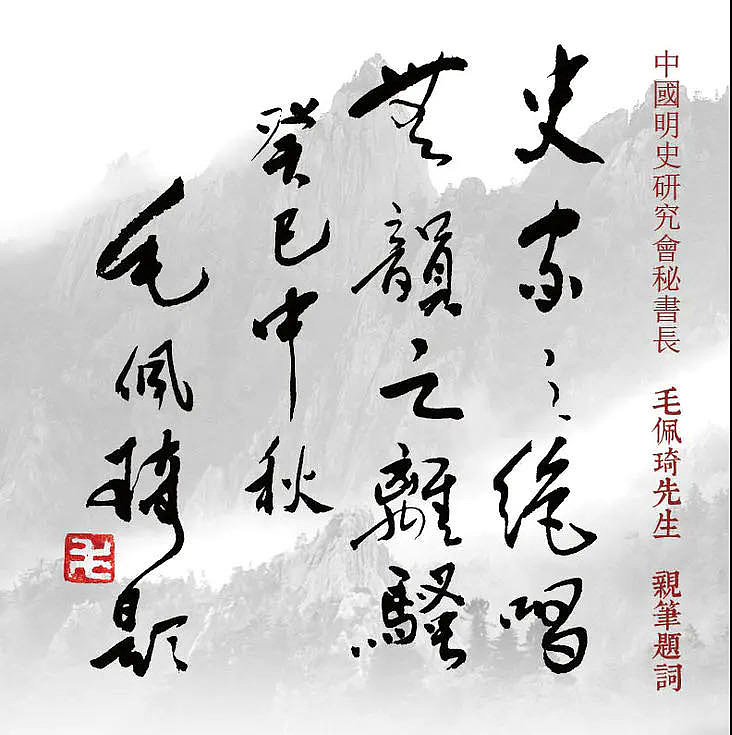 中國明史研究會秘書長 毛佩琦先生 親筆題詞
史家之絶唱
無韻之離騷
癸巳中秋
毛佩琦題